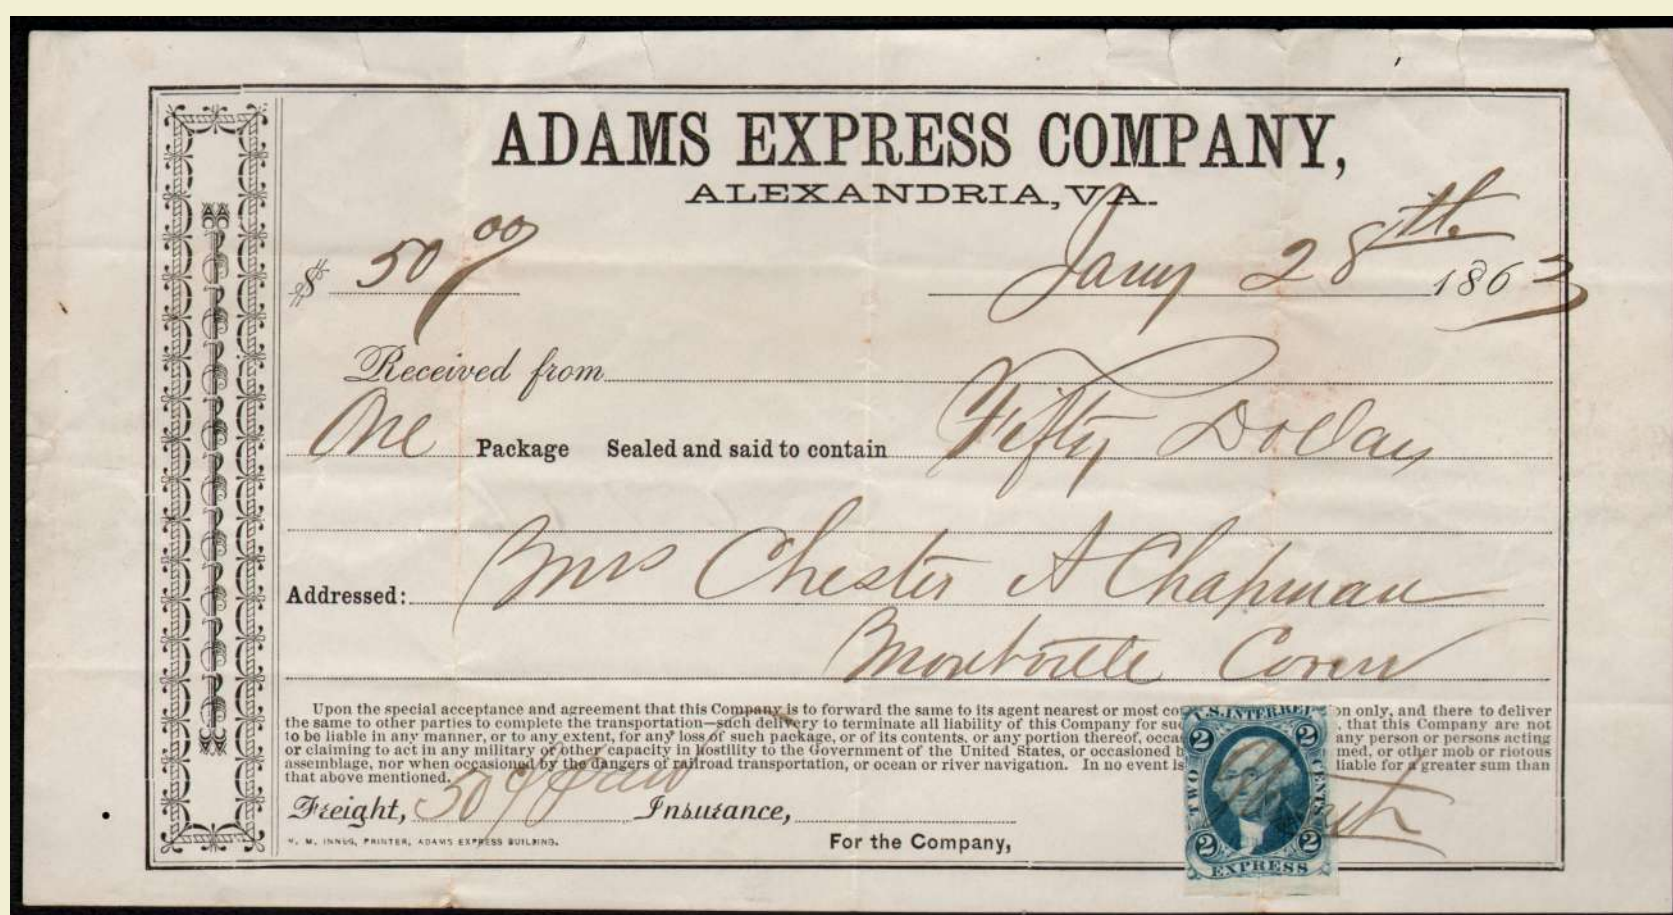 ADAMS EXPRESS COMPANY,
ALEXANDRIA, VA.
$ 50 00 Jany 28th 1863
Received from
One Package Sealed and said to contain Fifty Dollars
Addressed: Mrs Chester A Chapman
Montville Conn
Upon the special acceptance and agreement that this Company is to forward the same to its agent nearest or most co on only, and there to deliver
the same to other parties to complete the transportation—such delivery to terminate all liability of this Company for su , that this Company are not
to be liable in any manner, or to any extent, for any loss of such package, or of its contents, or any portion thereof, occa any person or persons acting
or claiming to act in any military or other capacity in hostility to the Government of the United States, or occasioned b med, or other mob or riotous
assemblage, nor when occasioned by the dangers of railroad transportation, or ocean or river navigation. In no event is liable for a greater sum than
that above mentioned.
Freight, 50 Insurance,
For the Company,
PRINTER, ADAMS EXPRESS BUILDING.
U.S. INTER REV
2 2
TWO CENTS
2 2
EXPRESS